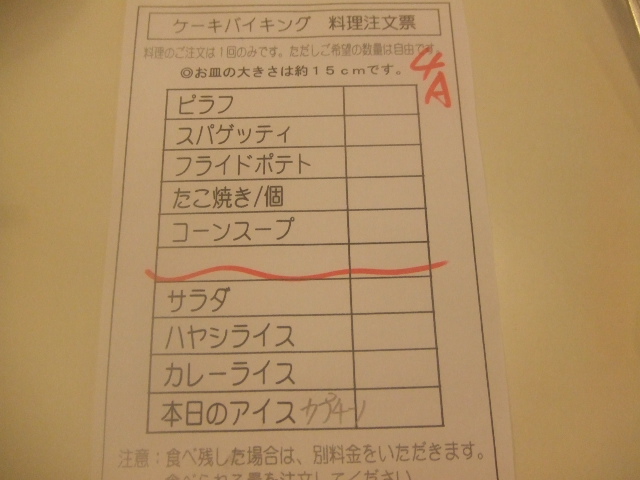 ケーキバイキング 料理注文票
料理のご注文は1回のみです。ただしご希望の数量は自由です。
◎お皿の大きさは約15cmです。
4A
ピラフ
スパゲッティ
フライドポテト
たこ焼き/個
コーンスープ
サラダ
ハヤシライス
カレーライス
本日のアイス
注意：食べ残した場合は、別料金をいただきます。
食べられる量を注文してください